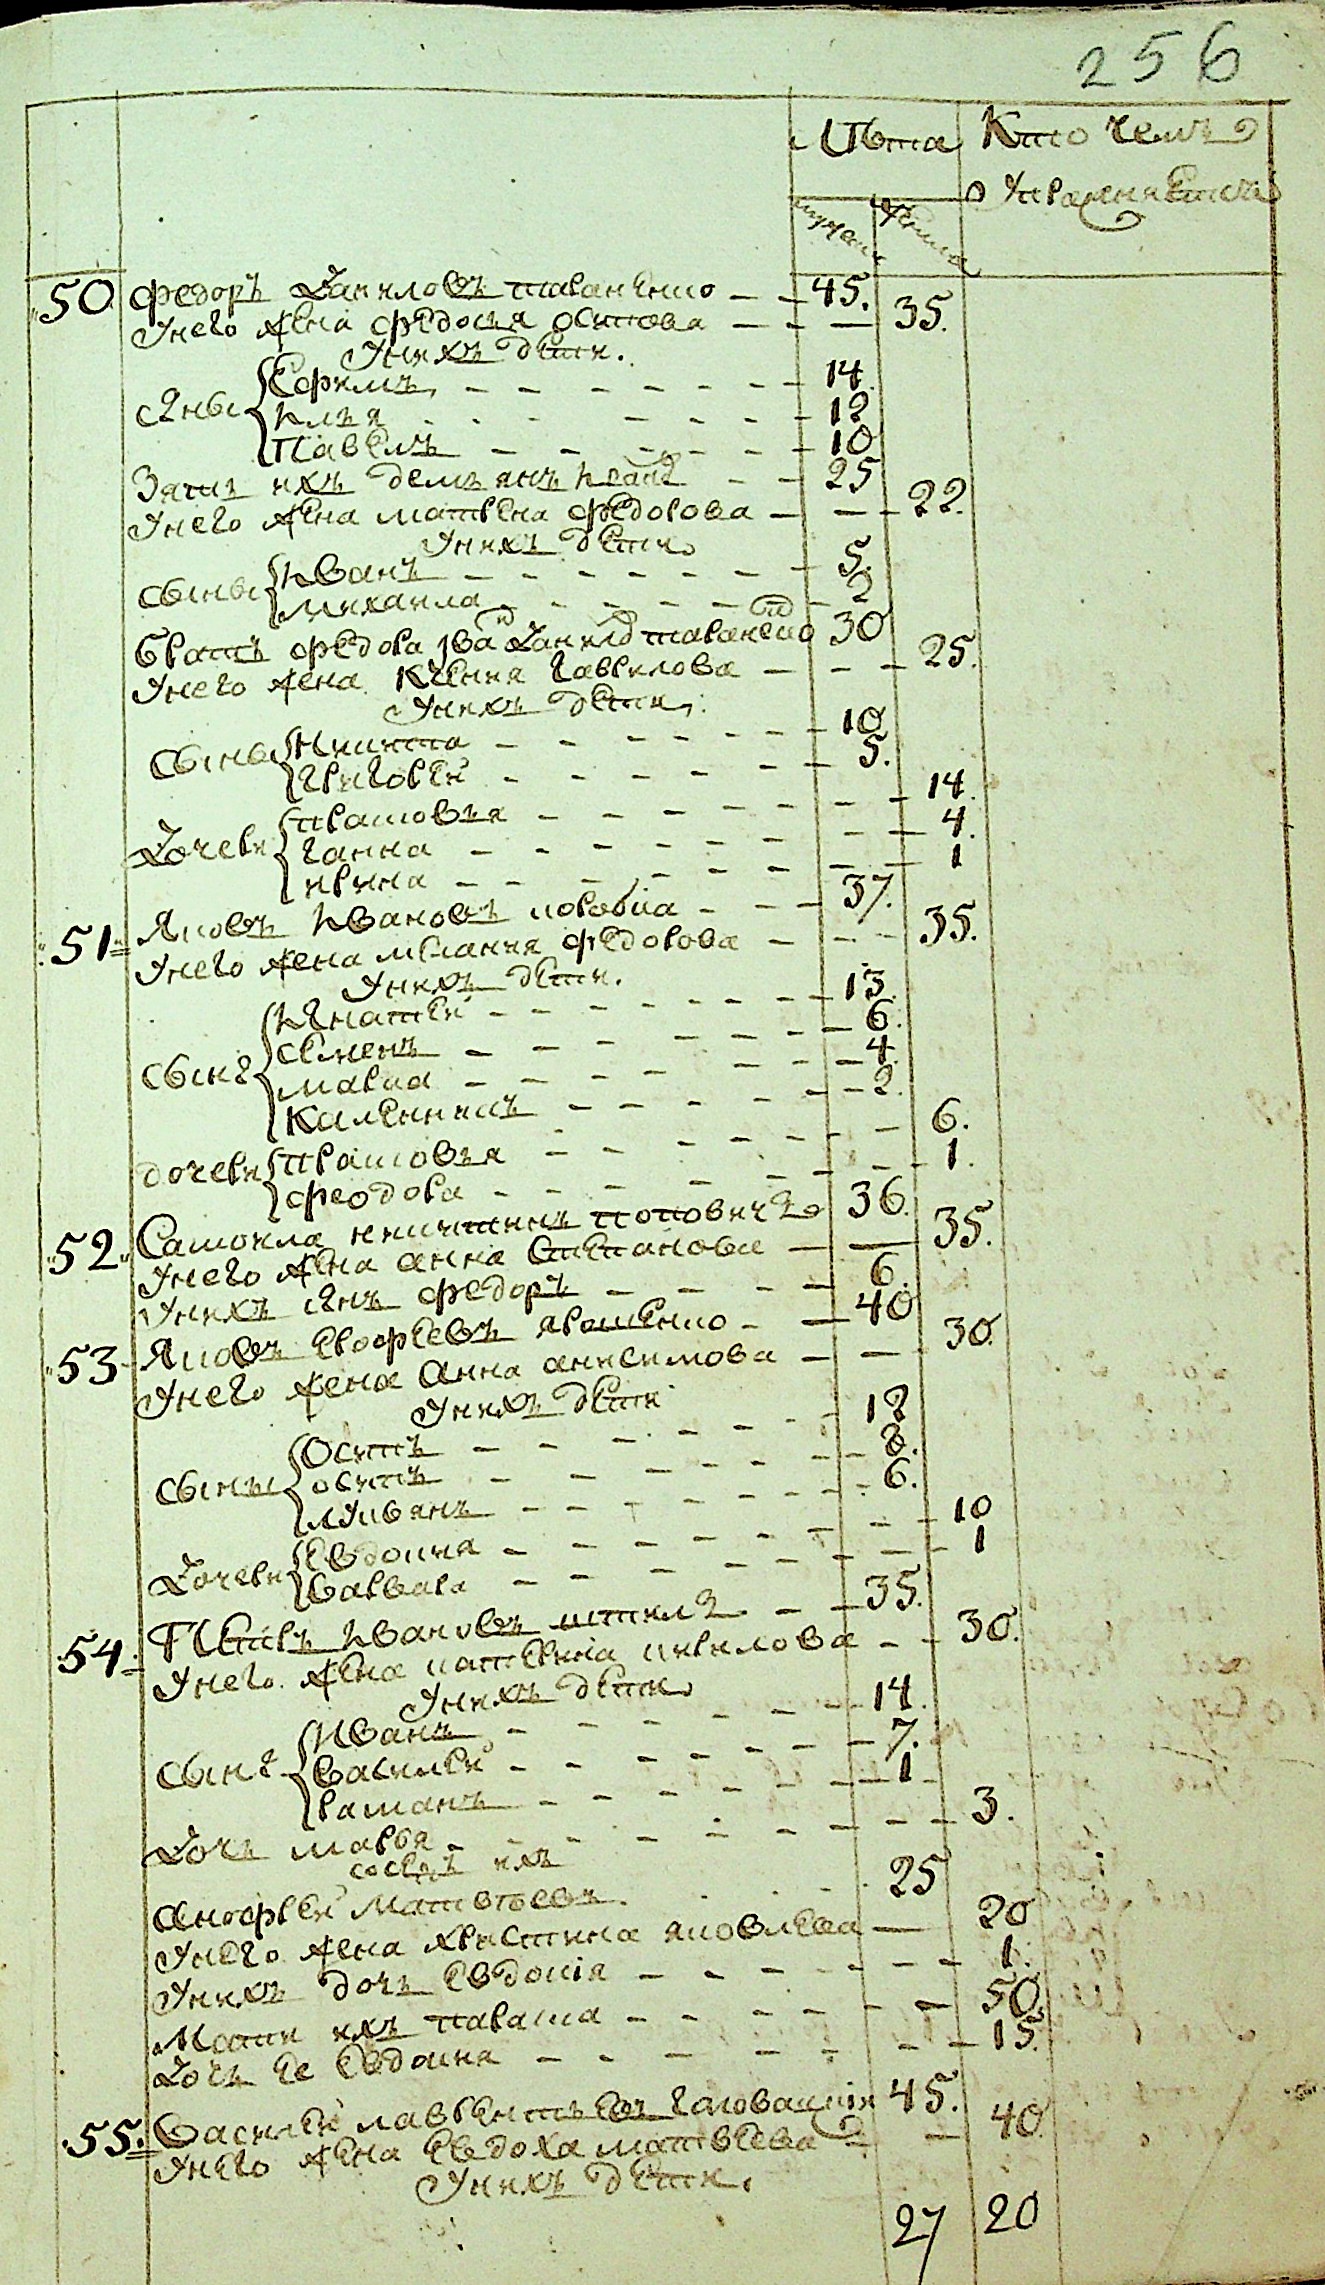 256
Лѣта Кто чемъ
мужеска женска упражняется
50 Федоръ Даниловъ тараненко 45.
Унего жена федосья осипова 35.
Унихъ дети.
сыны Ефимъ 14.
илья 12
Павелъ 10
Зять ихъ демьянъ 25
Унего жена матрена федорова 22.
Унихъ дети
сыны иванъ 5.
михаила 2
братъ федора два данило тараненко 30
Унего жена Ксения гаврилова 25.
Унихъ дети.
Сыны Никита 10
григорей 5.
Дочери прасковья 14.
ганна 4.
ирина 1
51 Яковъ Ивановъ коробка 37.
Унего жена мелания федорова 35.
Унихъ дети.
сыны Игнатей 13.
семенъ 6.
марка 4.
Калениникъ 2.
дочери прасковья 6.
феодора 1.
52 Самоила никитинъ поповичъ 36.
Унего жена анна степанова 35.
Унихъ сынъ федоръ 6.
53 Яковъ ерофеевъ ярошенко 40
Унего жена Анна анисимова 30.
Унихъ дети
сыны Осипъ 12
осипъ 8.
лукьянъ 6.
Дочери евдокия 10
варвара 1
54 Петръ Ивановъ 35.
Унего жена катерина кирилова 30.
Унихъ дети
сыны Иванъ 14.
василей 7.
раманъ 1
Дочь марья 3.
соседъ ихъ
андрей матвеевъ 25
Унего жена христина яковлева 20
Унихъ дочь евдокия 1.
Мати ихъ параска 50.
Дочь ее евдокия 15.
55. Василей лаврентьевъ головацкий 45.
Унего жена евдоха матвеева 40
Унихъ дети.
27 20